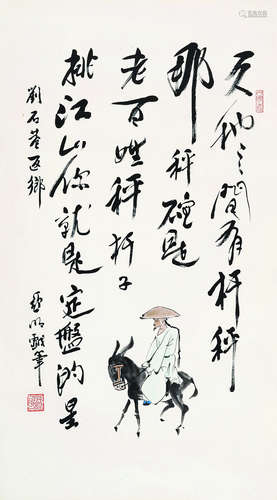 天地之間有杆秤
那秤砣是
老百姓秤杆子
挑江山你就是定盤的星
劉石菴返鄉
亞明戲筆